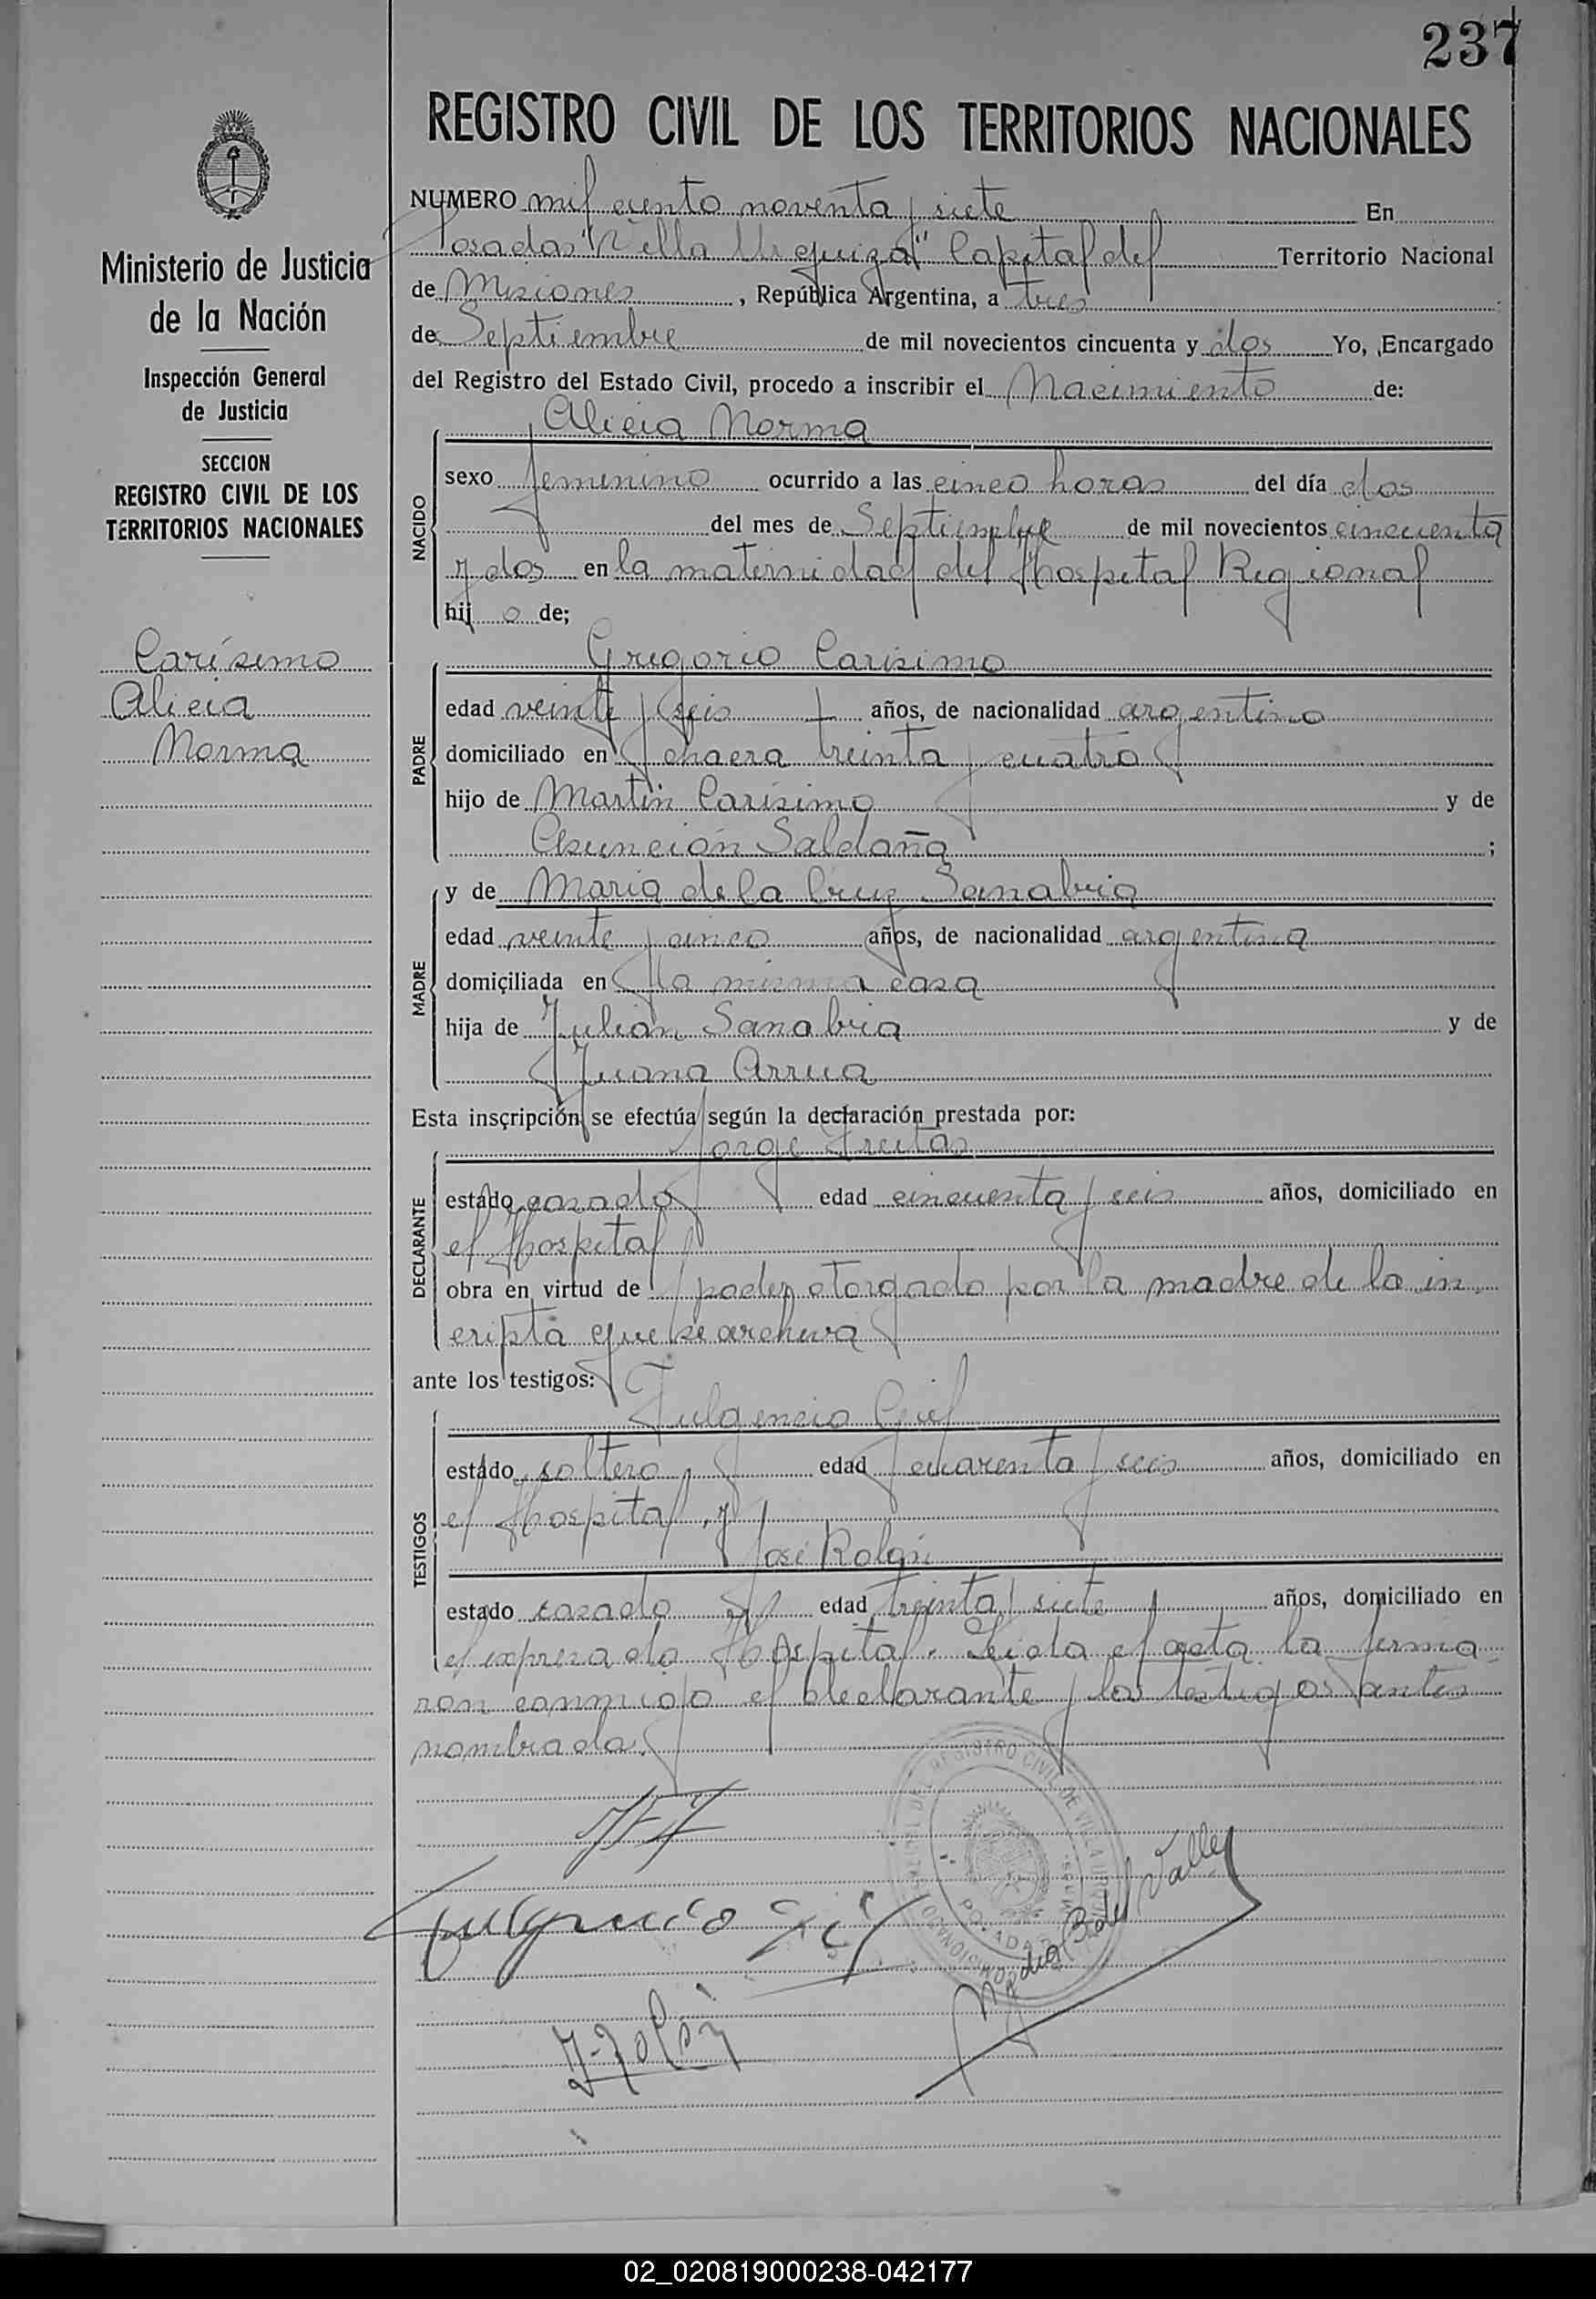 237
REGISTRO CIVIL DE LOS TERRITORIOS NACIONALES
Ministerio de Justicia
de la Nación
Inspección General
de Justicia
SECCION
REGISTRO CIVIL DE LOS
TERRITORIOS NACIONALES
Carísimo
Alicia
Norma
NUMERO mil ciento noventa y siete En
Posadas "Villa Urquiza" Capital del Territorio Nacional
de Misiones, República Argentina, a tres
de Septiembre de mil novecientos cincuenta y dos Yo, Encargado
del Registro del Estado Civil, procedo a inscribir el Nacimiento de:
Alicia Norma
NACIDO
sexo femenino ocurrido a las cinco horas del día dos
del mes de Septiembre de mil novecientos cincuenta
y dos en la maternidad del Hospital Regional
hij a de;
Gregorio Carísimo
PADRE
edad veinte y seis años, de nacionalidad argentino
domiciliado en chacra treinta y cuatro
hijo de Martín Carísimo y de
Asunción Saldaña ;
MADRE
y de María de la Cruz Sanabria
edad veinte y cinco años, de nacionalidad argentina
domiciliada en la misma casa
hija de Julián Sanabria y de
Juana Arrua
Esta inscripción se efectúa según la declaración prestada por:
Jorge Freitas
DECLARANTE
estado casado edad cincuenta y seis años, domiciliado en
el Hospital
obra en virtud de poder otorgado por la madre de la in
cripta que se archiva
ante los testigos:
Fulgencio Gil
TESTIGOS
estado soltero, edad cuarenta y seis años, domiciliado en
el Hospital, y
José Rolón
estado casado edad treinta y siete años, domiciliado en
el expresado Hospital. Leida el acta la firma
ron conmigo el declarante y los testigos antes
nombrados.
Fulgencio Gil
J. Rolón
REGISTRO CIVIL DE VILLA URQUIZA
POSADAS
02_020819000238-042177